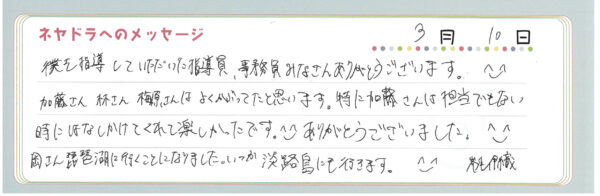 ネヤドラへのメッセージ
3月 10日
僕を指導していただいた指導員、事務員みなさんありがとうございます。
加藤さん 林さん 梅原さんは よくかぶってたと思います。特に加藤さんは担当でもない
時にはなしかけてくれて楽しかったです。^^ ありがとうございました。 ^^
岡さん 琵琶湖に行くことになりました。いつか 淡路島にも行きます。 ^^